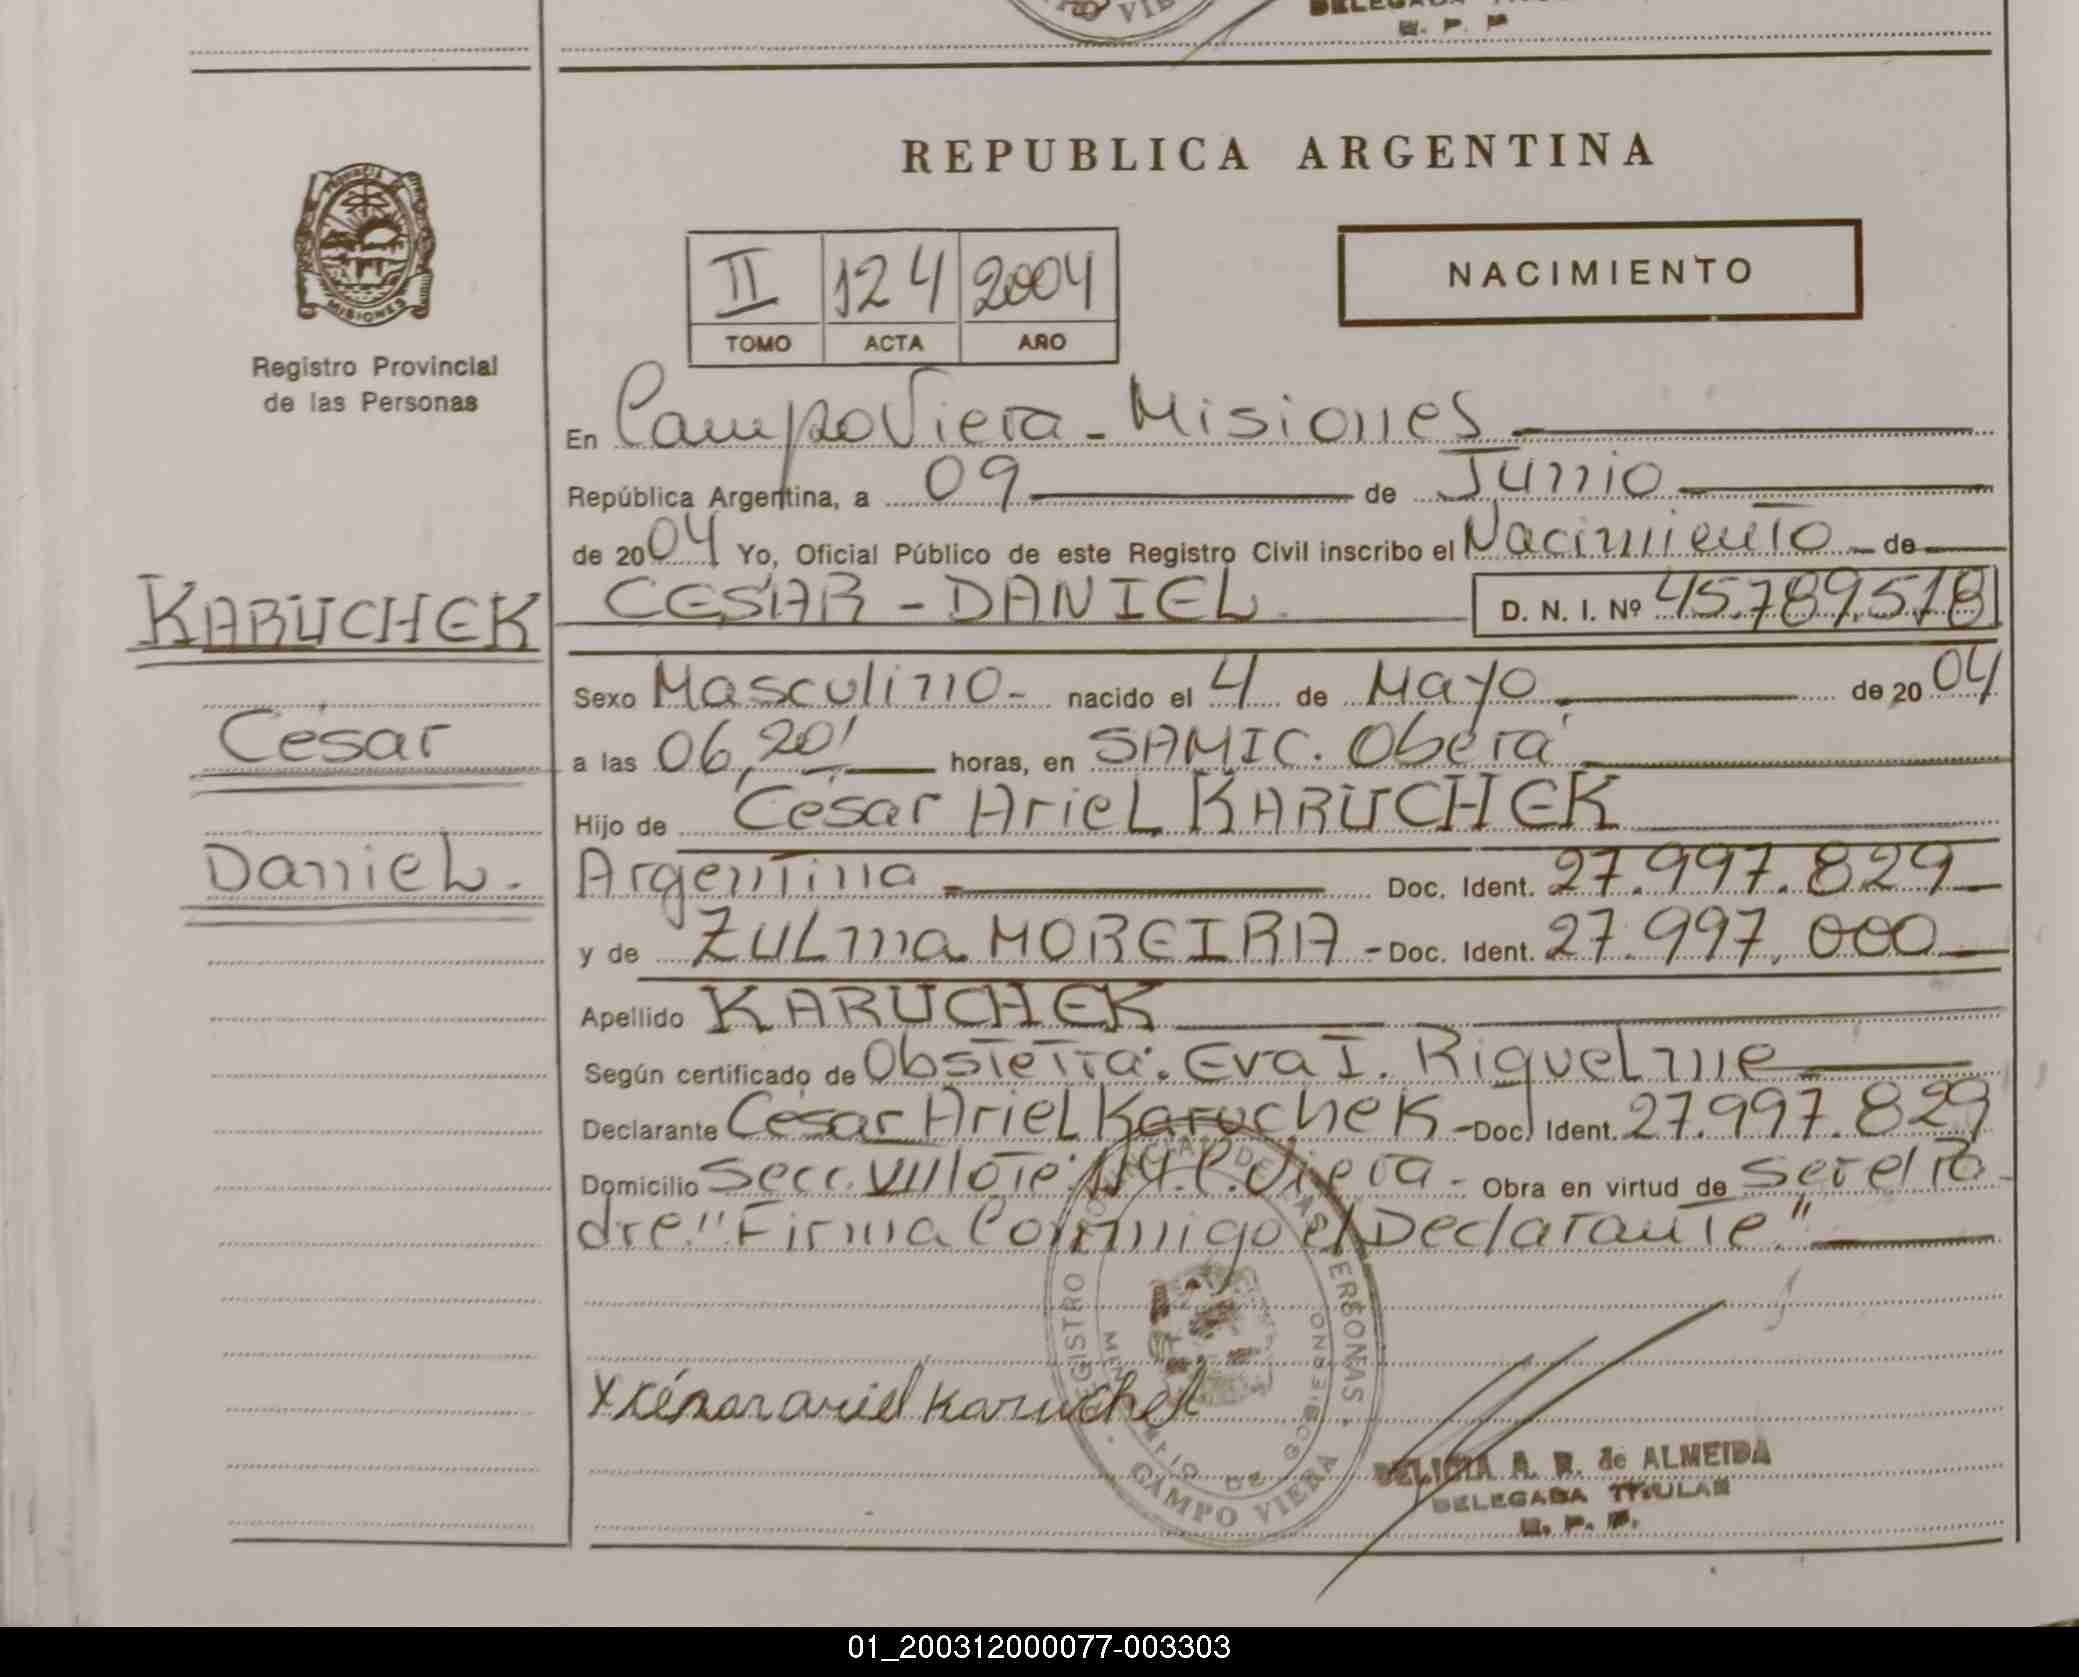 DELEGADA
R. P. P
REPUBLICA ARGENTINA
II 124 2004
TOMO ACTA AÑO
NACIMIENTO
PROVINCIA DE
MISIONES
Registro Provincial
de las Personas
KARUCHEK
César
Daniel.
En Campo Viera - Misiones
República Argentina, a 09 de Junio
de 2004 Yo, Oficial Público de este Registro Civil inscribo el Nacimiento de
CESAR - DANIEL D. N. I. Nº 45.789.518
Sexo Masculino - nacido el 4 de Mayo de 2004
a las 06,20' horas, en SAMIC. Oberá
Hijo de César Ariel KARUCHEK
Argentina Doc. Ident. 27.997.829
y de Zulma MOREIRA - Doc. Ident. 27.997.000
Apellido KARUCHEK
Según certificado de Obstetra: Eva I. Riquelme
Declarante César Ariel Karuchek - Doc. Ident. 27.997.829
Domicilio Secc. VIII Lote: C. Viera - Obra en virtud de ser el Pa-
dre. "Firma Conmigo el Declarante."
REGISTRO PROVINCIAL DE LAS PERSONAS
MINISTERIO DE GOBIERNO
CAMPO VIERA
X césar ariel Karuchek
DELICIA A. R. de ALMEIDA
DELEGADA TITULAR
R. P. P.
01_200312000077-003303